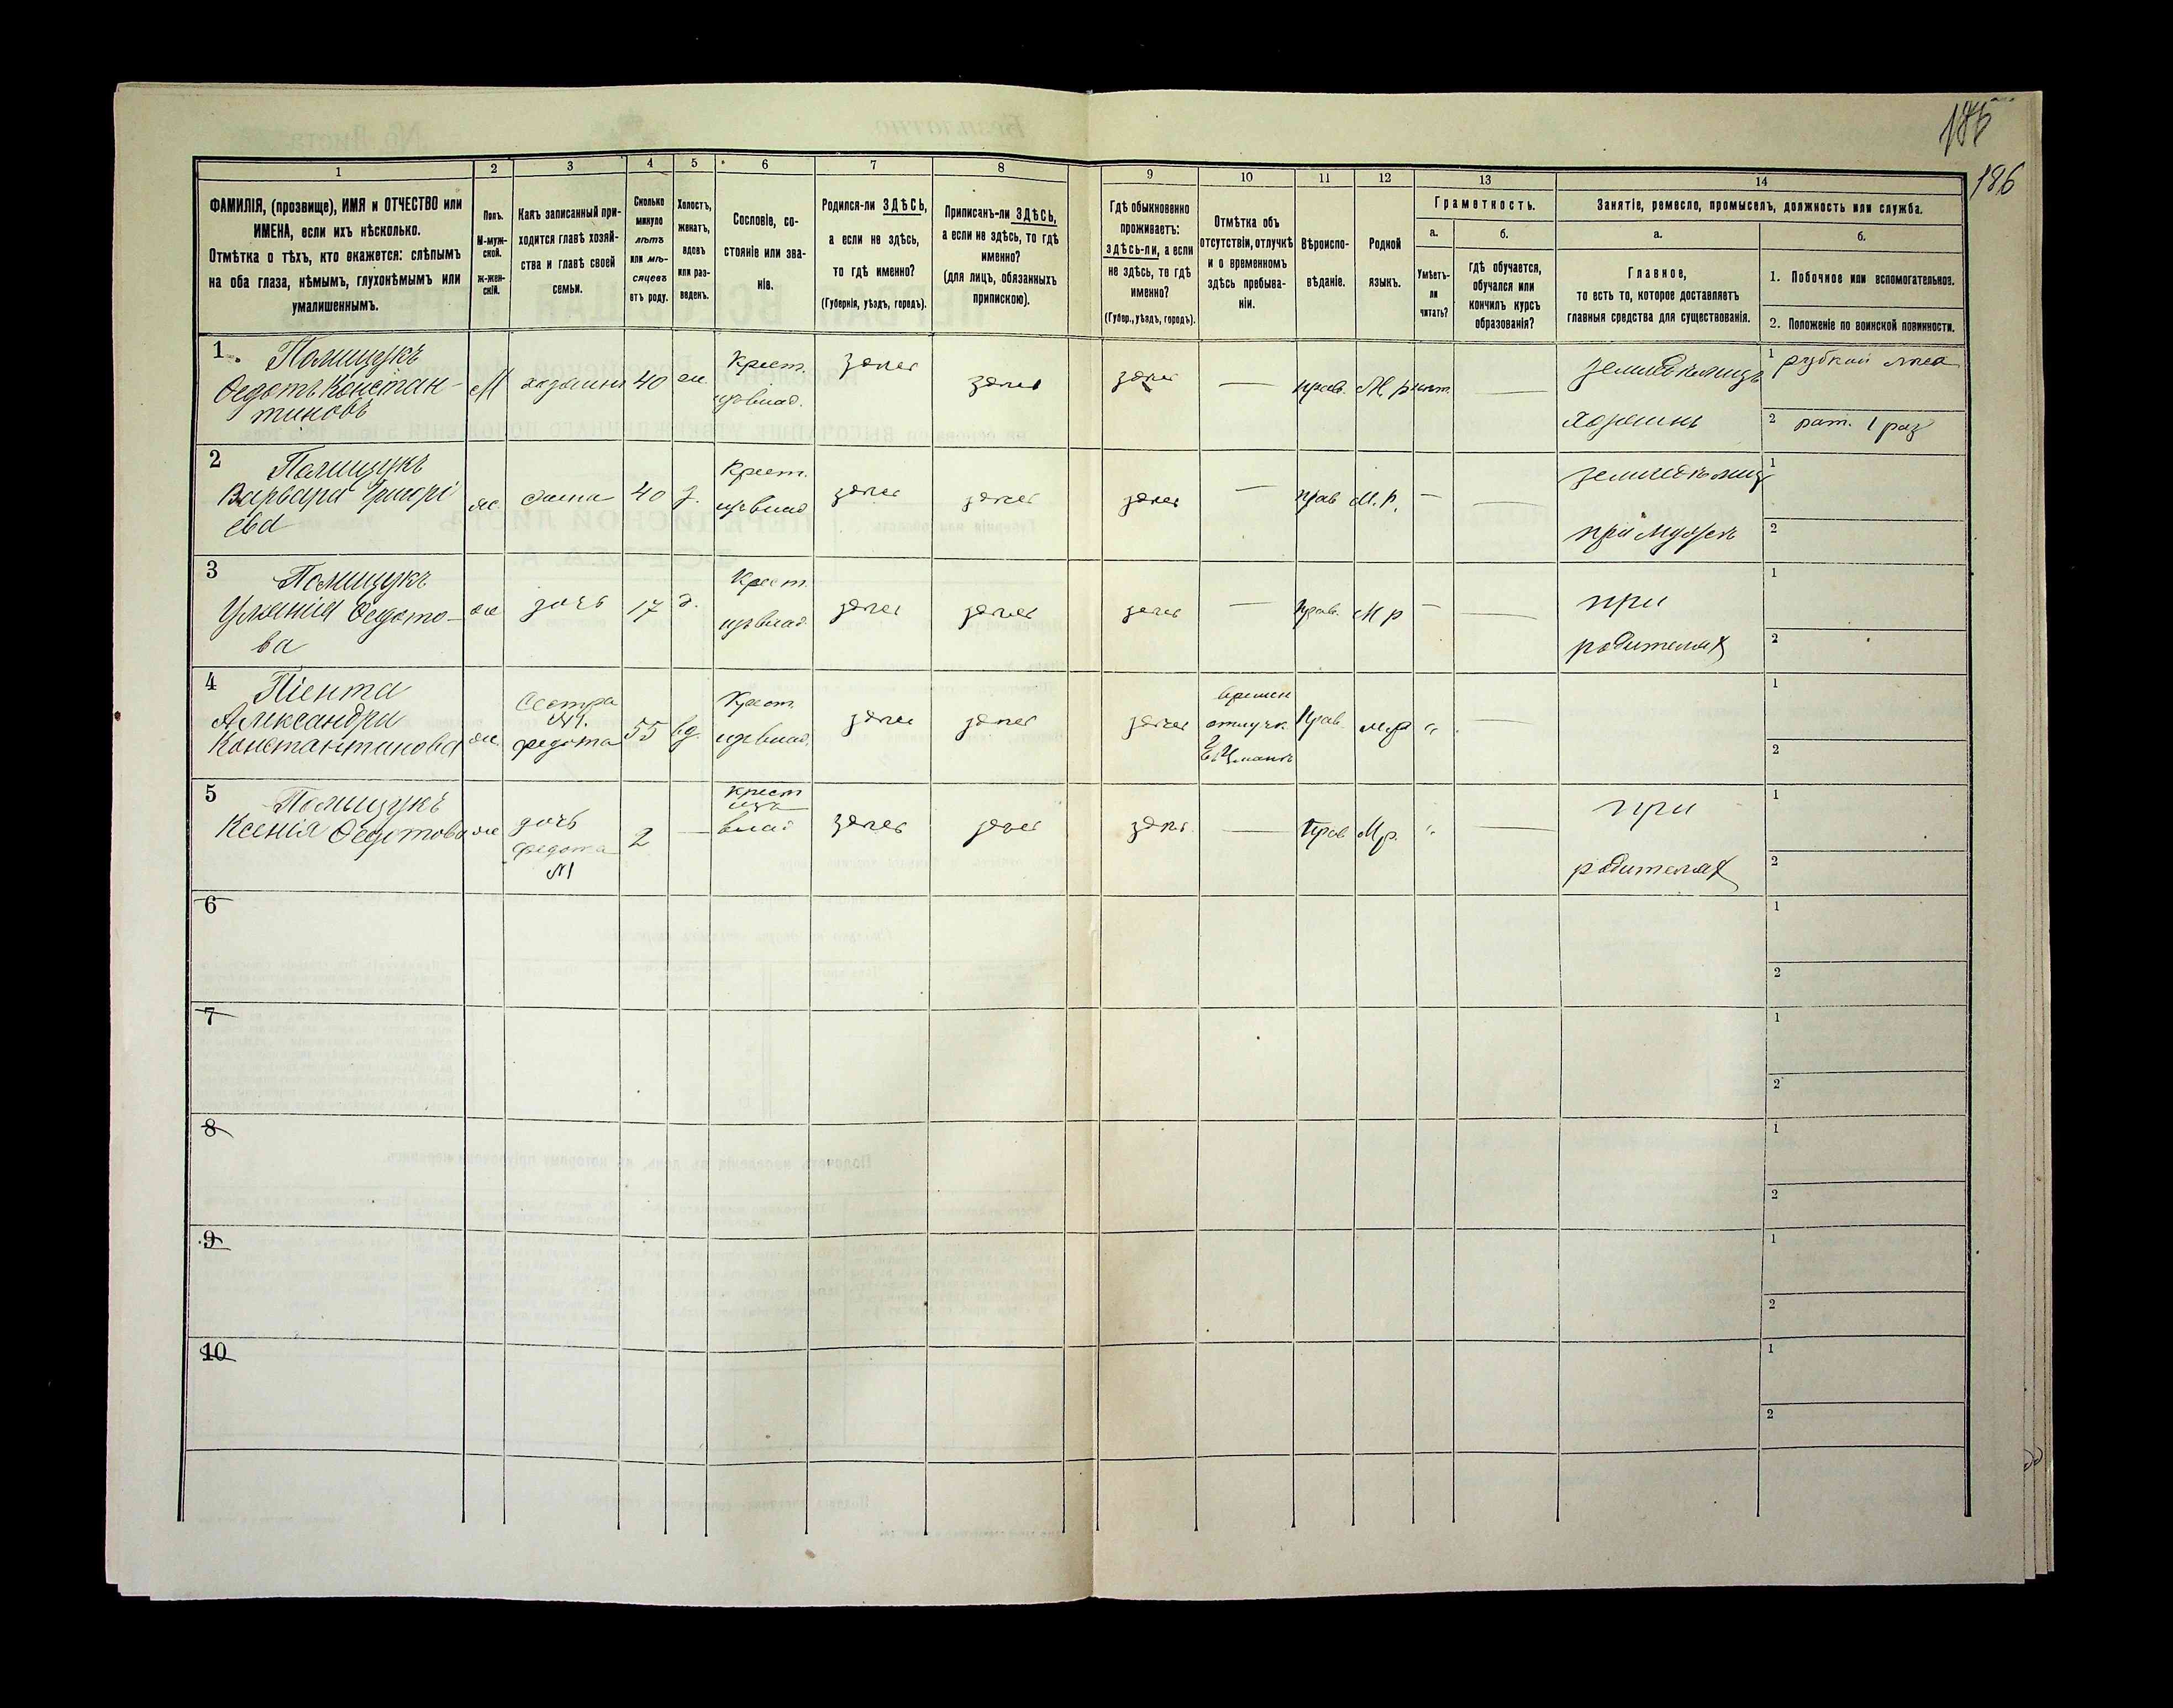 185
186
1 2 3 4 5 6 7 8 9 10 11 12 13 14
ФАМИЛІЯ, (прозвище), ИМЯ и ОТЧЕСТВО или
ИМЕНА, если ихъ нѣсколько.
Отмѣтка о тѣхъ, кто окажется: слѣпымъ
на оба глаза, нѣмымъ, глухонѣмымъ или
умалишеннымъ.
Полъ.
М-муж-
ской.
Ж-жен-
скій.
Какъ записанный при-
ходится главѣ хозяй-
ства и главѣ своей
семьи.
Сколько
минуло
лѣтъ
или мѣ-
сяцевъ
отъ роду.
Холостъ,
женатъ,
вдовъ
или раз-
веденъ.
Сословіе, со-
стояніе или зва-
ніе.
Родился-ли ЗДѢСЬ,
а если не здѣсь,
то гдѣ именно?
(Губернія, уѣздъ, городъ).
Приписанъ-ли ЗДѢСЬ,
а если не здѣсь, то гдѣ
именно?
(для лицъ, обязанныхъ
припискою).
Гдѣ обыкновенно
проживаетъ:
здѣсь-ли, а если
не здѣсь, то гдѣ
именно?
(Губер., уѣздъ, городъ).
Отмѣтка объ
отсутствіи, отлучкѣ
и о временномъ
здѣсь пребыва-
ніи.
Вѣроиспо-
вѣданіе.
Родной
языкъ.
Грамотность.
а.
Умѣетъ-
ли
читать?
б.
гдѣ обучается,
обучался или
кончилъ курсъ
образованія?
Занятіе, ремесло, промыселъ, должность или служба.
а.
Главное,
то есть то, которое доставляетъ
главныя средства для существованія.
б.
1. Побочное или вспомогательное.
2. Положеніе по воинской повинности.
1. Полищукъ
Ѳедотъ Констан-
тиновъ
М хозяинъ 40 ж. Крест. изъ влад. здѣсь здѣсь здѣсь — прав. М. р нѣт. — земледѣлецъ хозяинъ
1 рубкой лѣса
2 рат. 1 раз
2 Полищукъ
Варвара Григорі
ева
ж. жена 40 з. Крест. изъ влад здѣсь здѣсь здѣсь — прав М. р. — — земледѣлец при мужѣ
1
2
3 Полищукъ
Ульянія Ѳедото-
ва
ж дочь 17 д. Крест. изъ влад здѣсь здѣсь здѣсь — прав. М р — — при родителях
1
2
4 Піента
Александра
Константинова
ж. Сестра №1. Федота 55 вд. Крест. изъ влад. здѣсь здѣсь здѣсь времен отлучк. прав м. р " —
1
2
5 Полищукъ
Ксенія Ѳедотова
ж дочь Федота №1 2 — крест изъ влад здѣсь здѣсь здѣс — прав М р. " — при родителях
1
2
6
1
2
7
1
2
8
1
2
9
1
2
10
1
2